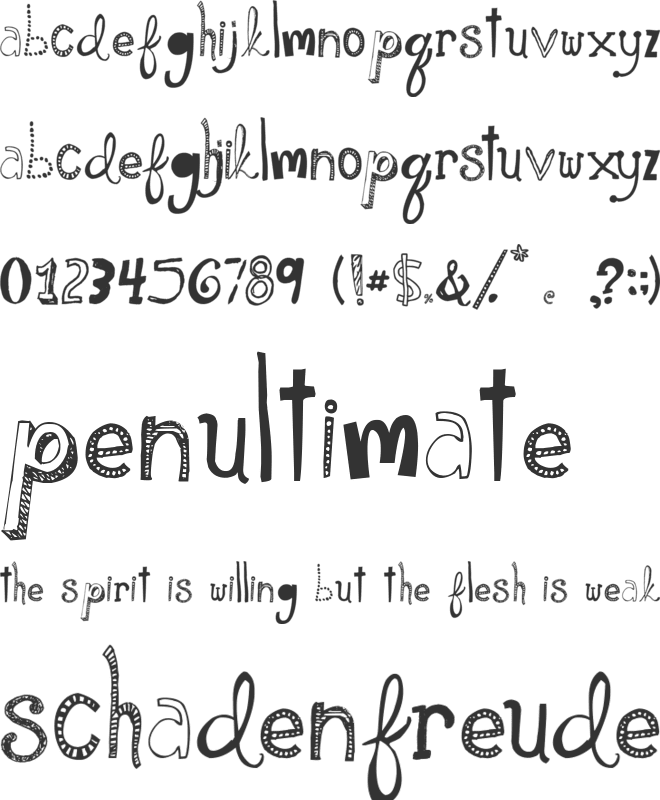 abcdefghijklmnopqrstuvwxyz
abcdefghjiklmnopqrstuvwxyz
0123456789 (!#$%&/* @ ,?:;)
penultimate
the spirit is willing but the flesh is weak
schadenfreude